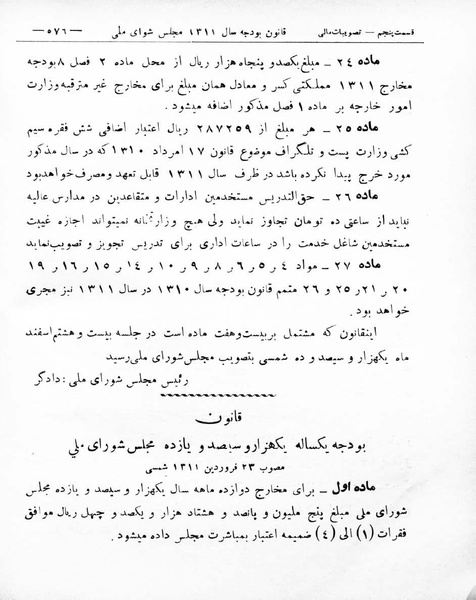 قسمت پنجم — تصویبات مالی قانون بودجه سال ۱۳۱۱ مجلس شورای ملی — ۵۷۶ —
ماده ۲۴ — مبلغ یکصد و پنجاه هزار ریال از محل ماده ۲ فصل ۸ بودجه
مخارج ۱۳۱۱ مملکتی کسر و معادل همان مبلغ برای مخارج غیر مترقبه وزارت
امور خارجه بر ماده ۱ فصل مذکور اضافه میشود.
ماده ۲۵ — هر مبلغ از ۲۸۷۲۵۹ ریال اعتبار اضافی شش فقره سیم
کشی وزارت پست و تلگراف موضوع قانون ۱۷ امرداد ۱۳۱۰ که در سال مذکور
مورد خرج پیدا نکرده باشد در ظرف سال ۱۳۱۱ قابل تعهد و مصرف خواهد بود
ماده ۲۶ — حق‌التدریس مستخدمین ادارات و متقاعدین در مدارس عالیه
نباید از ساعتی ده تومان تجاوز نماید ولی هیچ وزارتخانه نمیتواند اجازه غیبت
مستخدمین شاغل خدمت را در ساعات اداری برای تدریس تجویز و تصویب نماید
ماده ۲۷ — مواد ۴ و ۵ و ۶ و ۸ و ۹ و ۱۰ و ۱۴ و ۱۵ و ۱۶ و ۱۹
و ۲۰ و ۲۱ و ۲۵ و ۲۶ متمم قانون بودجه سال ۱۳۱۰ در سال ۱۳۱۱ نیز مجری
خواهد بود.
اینقانون که مشتمل بر بیست و هفت ماده است در جلسه بیست و هشتم اسفند
ماه یکهزار و سیصد و ده شمسی بتصویب مجلس شورای ملی رسید
رئیس مجلس شورای ملی : دادگر
قانون
بودجه یکساله یکهزار و سیصد و یازده مجلس شورای ملی
مصوب ۲۳ فروردین ۱۳۱۱ شمسی
ماده اول — برای مخارج دوازده ماهه سال یکهزار و سیصد و یازده مجلس
شورای ملی مبلغ پنج ملیون و پانصد و هشتاد هزار و یکصد و چهل ریال موافق
فقرات (۱) الی (۴) ضمیمه اعتبار بمباشرت مجلس داده میشود.